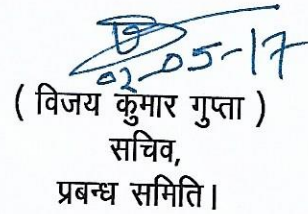 02-05-17
( विजय कुमार गुप्ता )
सचिव,
प्रबन्ध समिति।